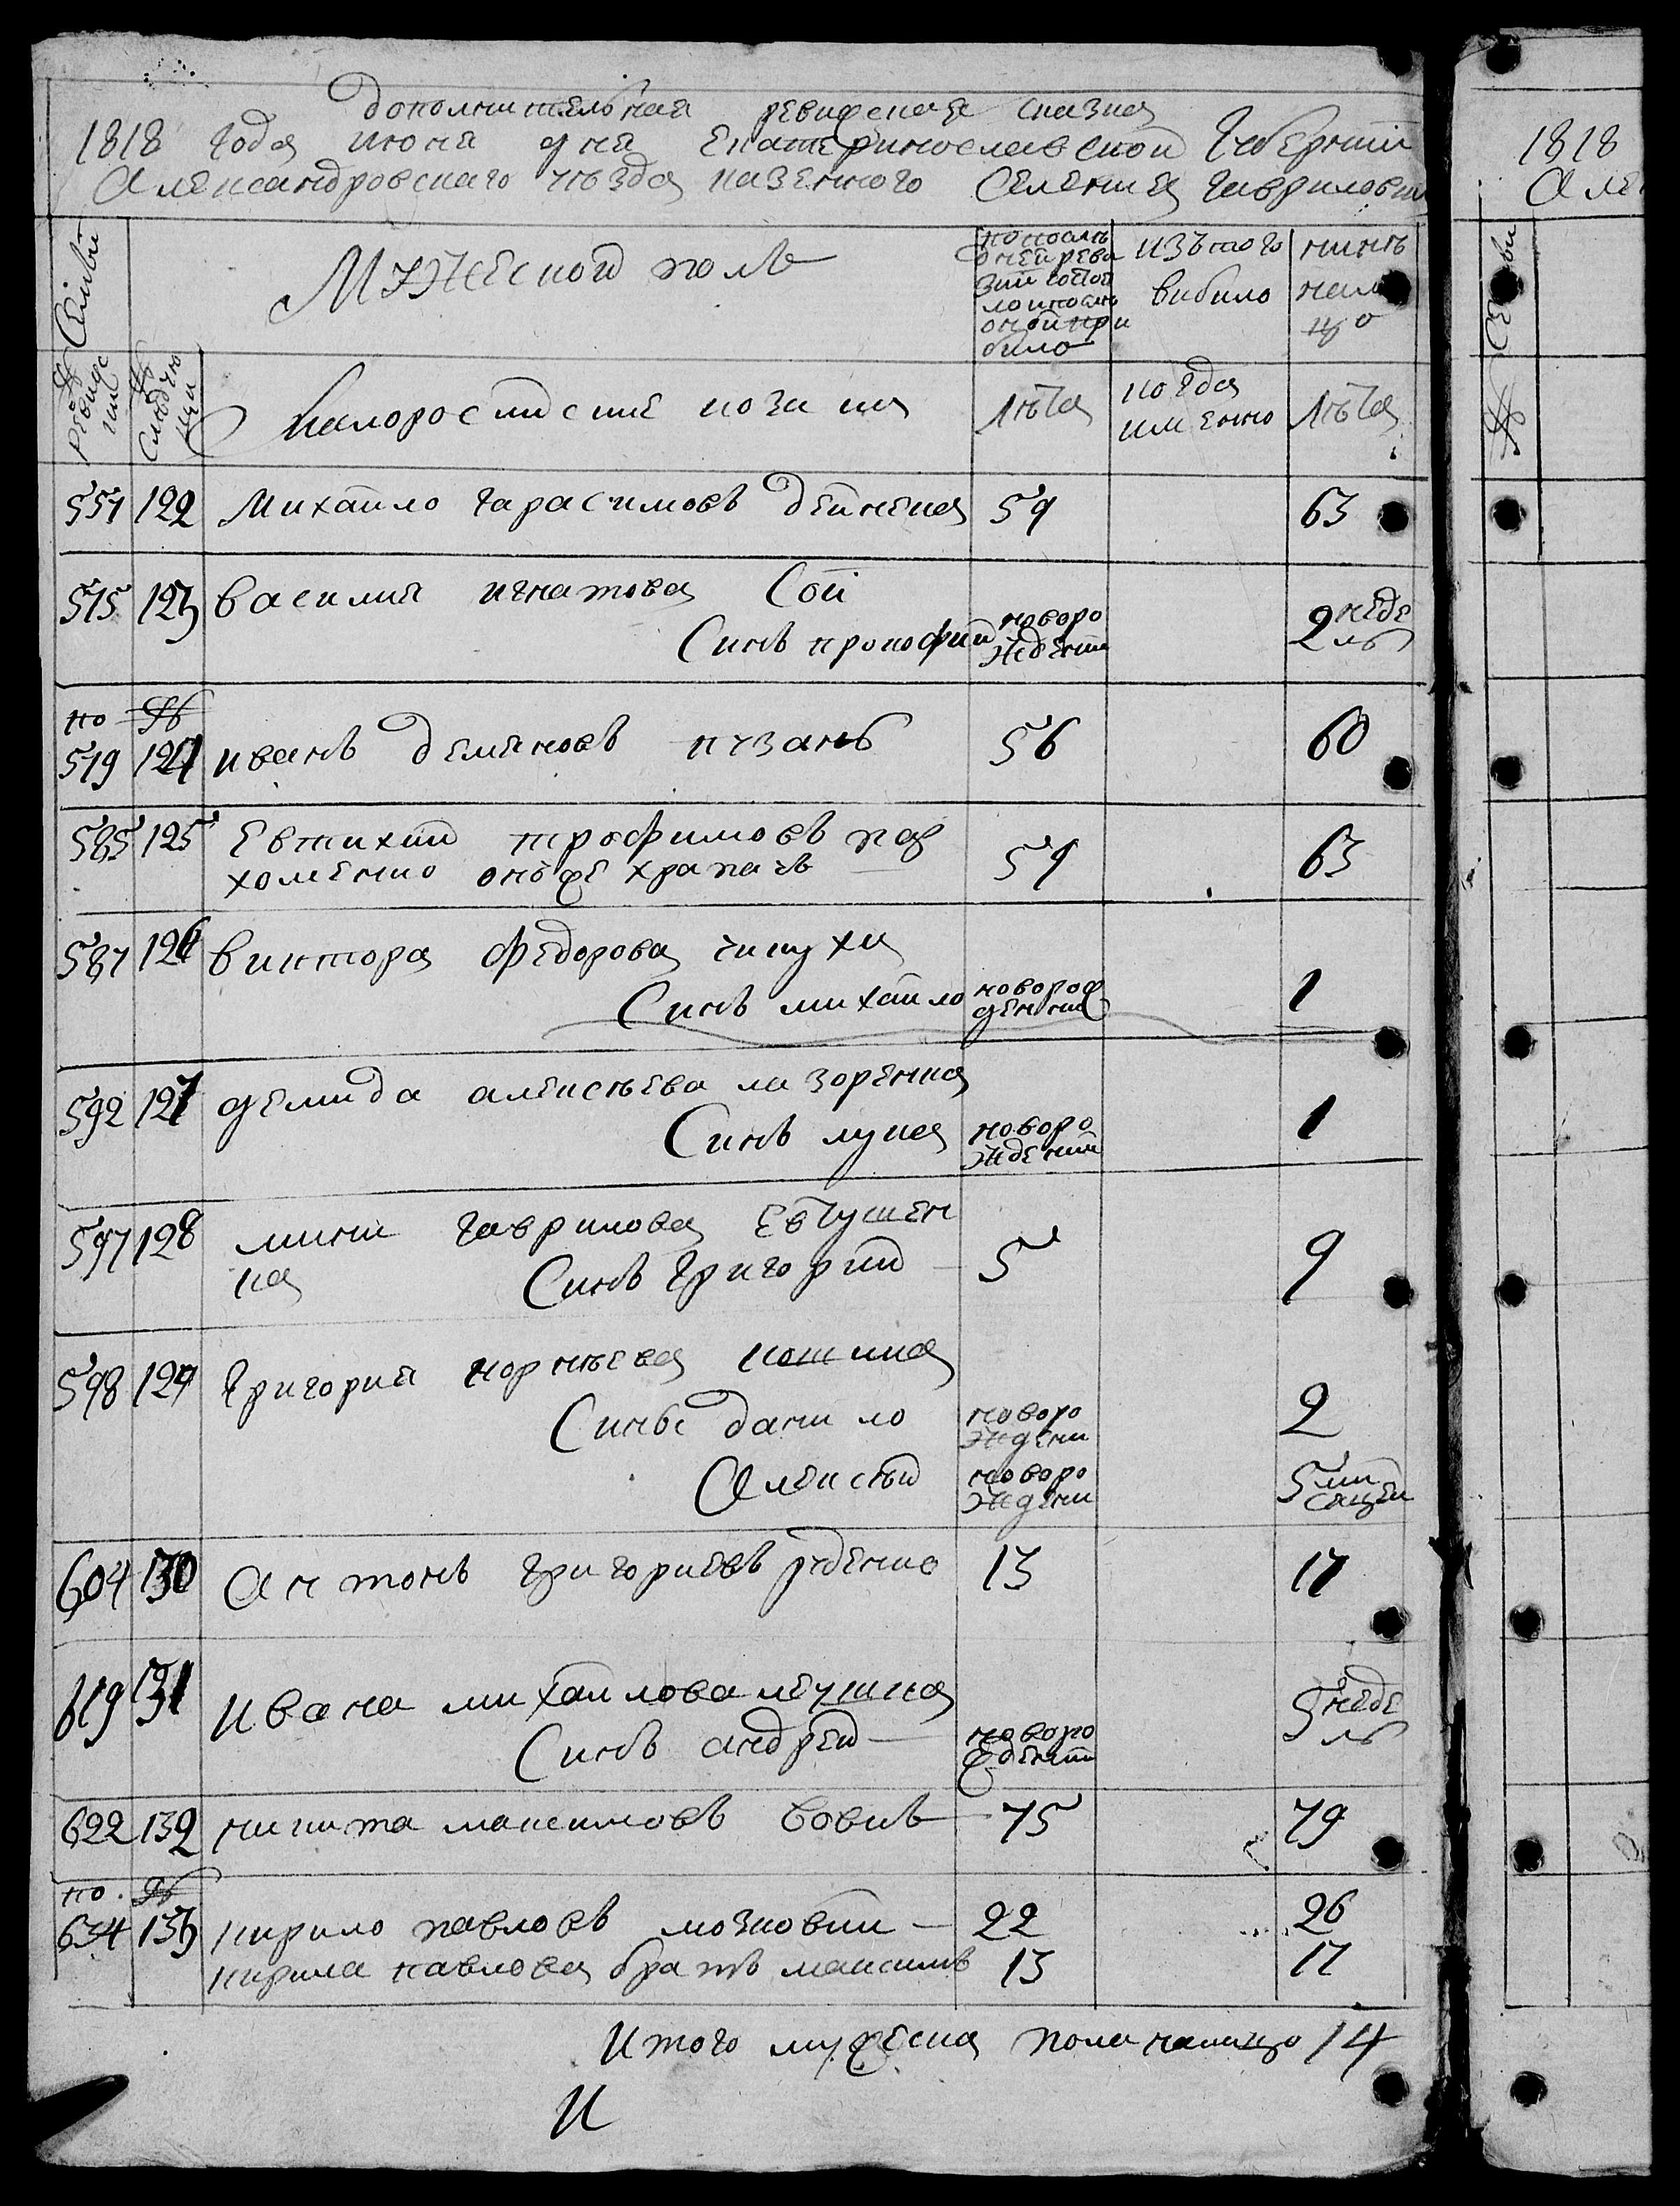 дополнителная ревижская сказка
1818 года июня дня Екатеринославской Губернии
Александровскаго уезда казенного Селения Гавриловки
№ Семьи
Мужеской полъ
по послѣ
дней реви
зии состоя
ло и послѣ
оной при
било
изъ того
вибило
нинѣ
нали
цо
ревизс
кии
№
следую
щеи
Малоросийские козаки
лѣта
когда
имянно
лѣта
557 122 Михайло Гарасимовъ дейнека 59 63
575 123 Василия игнатова Сои
Синъ прокофий новоро
ждении 2 неде
лѣ
по №
579 124 иванъ демяновъ пузанъ 56 60
585 125 Евтихий трофимовъ пар
хоменко онъ же храпачъ 59 63
587 126 Виктора Федорова чикухи
Синъ михайло новорож
деннии 1
592 127 демида алексѣева лазоренка
Синъ лука новоро
ждении 1
597 128 мини Гаврилова Евтушен
ка Синъ Григорий 5 9
598 129 Григория корнѣева кошика
Синъ данило новоро
ждени 2
Алексѣй новоро
ждени 5 ми
сяцеи
604 130 Антонъ Григориевъ руденко 13 17
619 131 Ивана михайлова леушка
Синъ андрей новоро
ждении 5 неде
лѣ
622 132 никита максимовъ вовкъ 75 79
по №
634 133 кирило павловъ мозковии 22 26
кирила павлова братъ максимъ 13 17
Итого мужеска пола налицо 14
И
1818
Але
№ Се